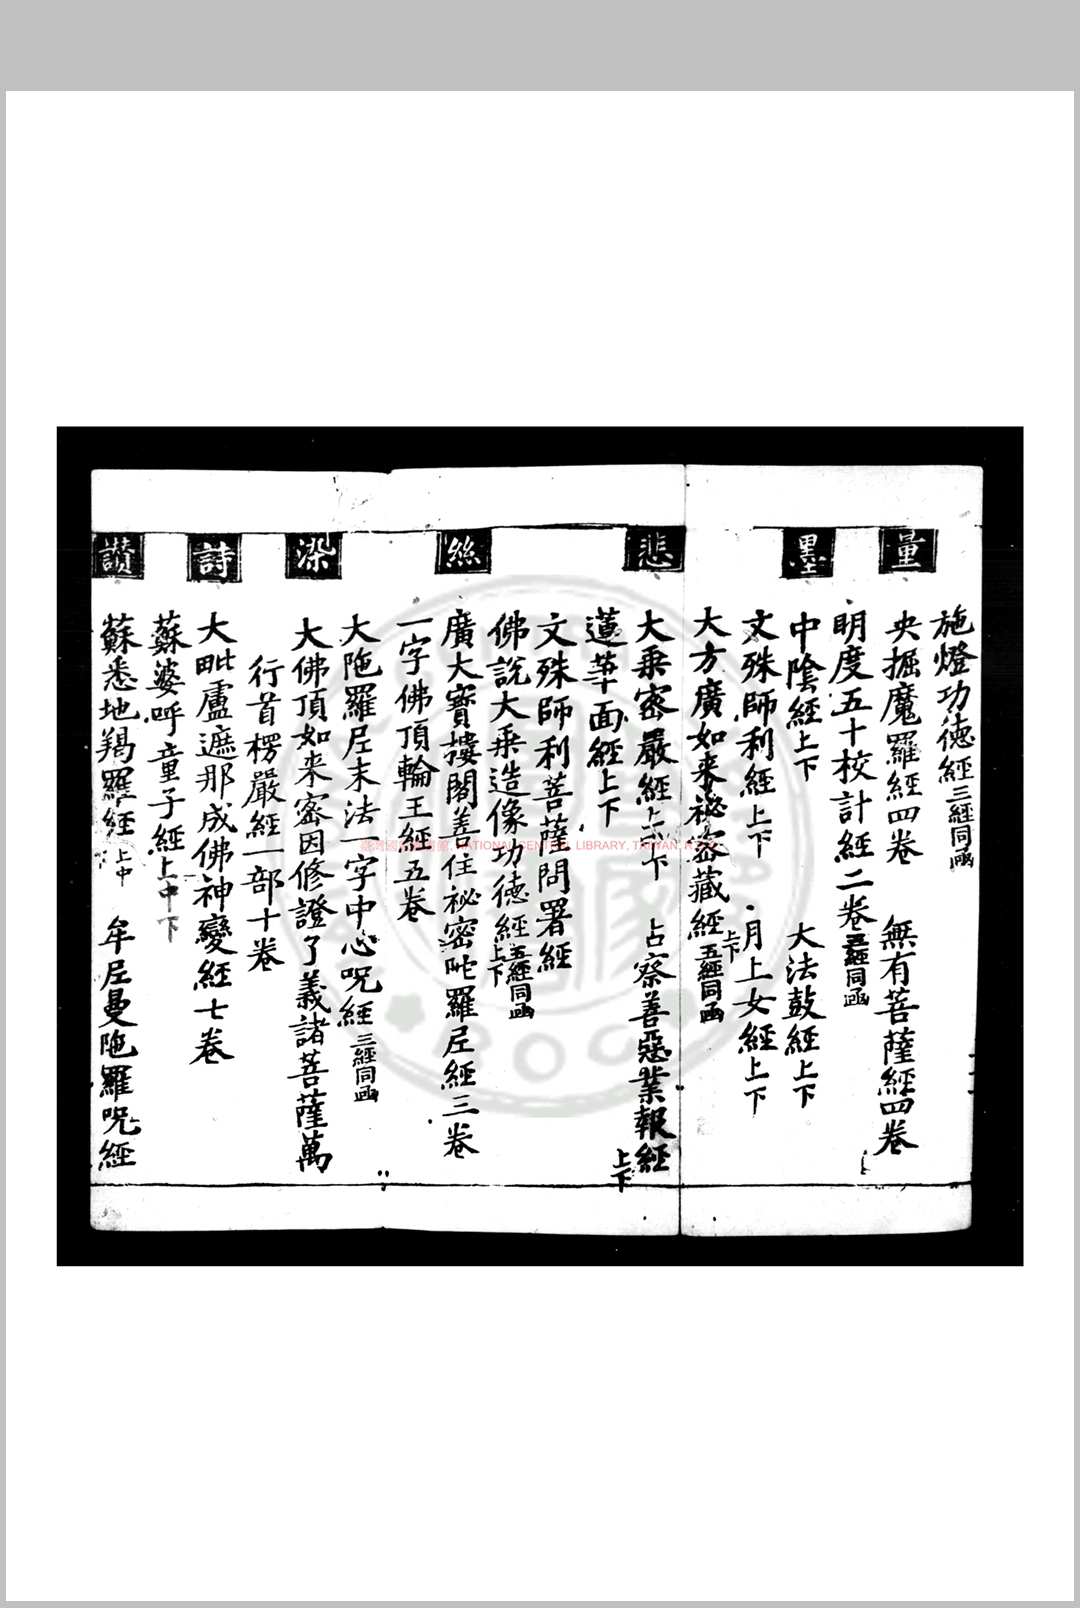 施燈功德經三經同函
量
央掘魔羅經四卷　無有菩薩經四卷
明度五十校計經二卷五經同函
墨
中陰經上下　大法鼓經上下
文殊師利經上下　月上女經上下
大方廣如来祕密藏經上下五經同函
悲
大乗密嚴經上下　占察善惡業報經上下
蓮華面經上下
文殊師利菩薩問署經
佛說大乗造像功德經上下五經同函
絲
廣大寶樓閣善住祕密陁羅尼經三卷
一字佛頂輪王經五卷
大陁羅尼末法一字中心呪經三經同函
染
大佛頂如来密因修證了義諸菩薩萬
行首楞嚴經一部十卷
詩
大毗盧遮那成佛神變經七卷
蘇婆呼童子經上中下
讃
蘇悉地羯羅經上中　牟尼曼陁羅呪經
臺灣國家圖書館, NATIONAL CENTRAL LIBRARY, TAIWAN, R.O.C
ROC